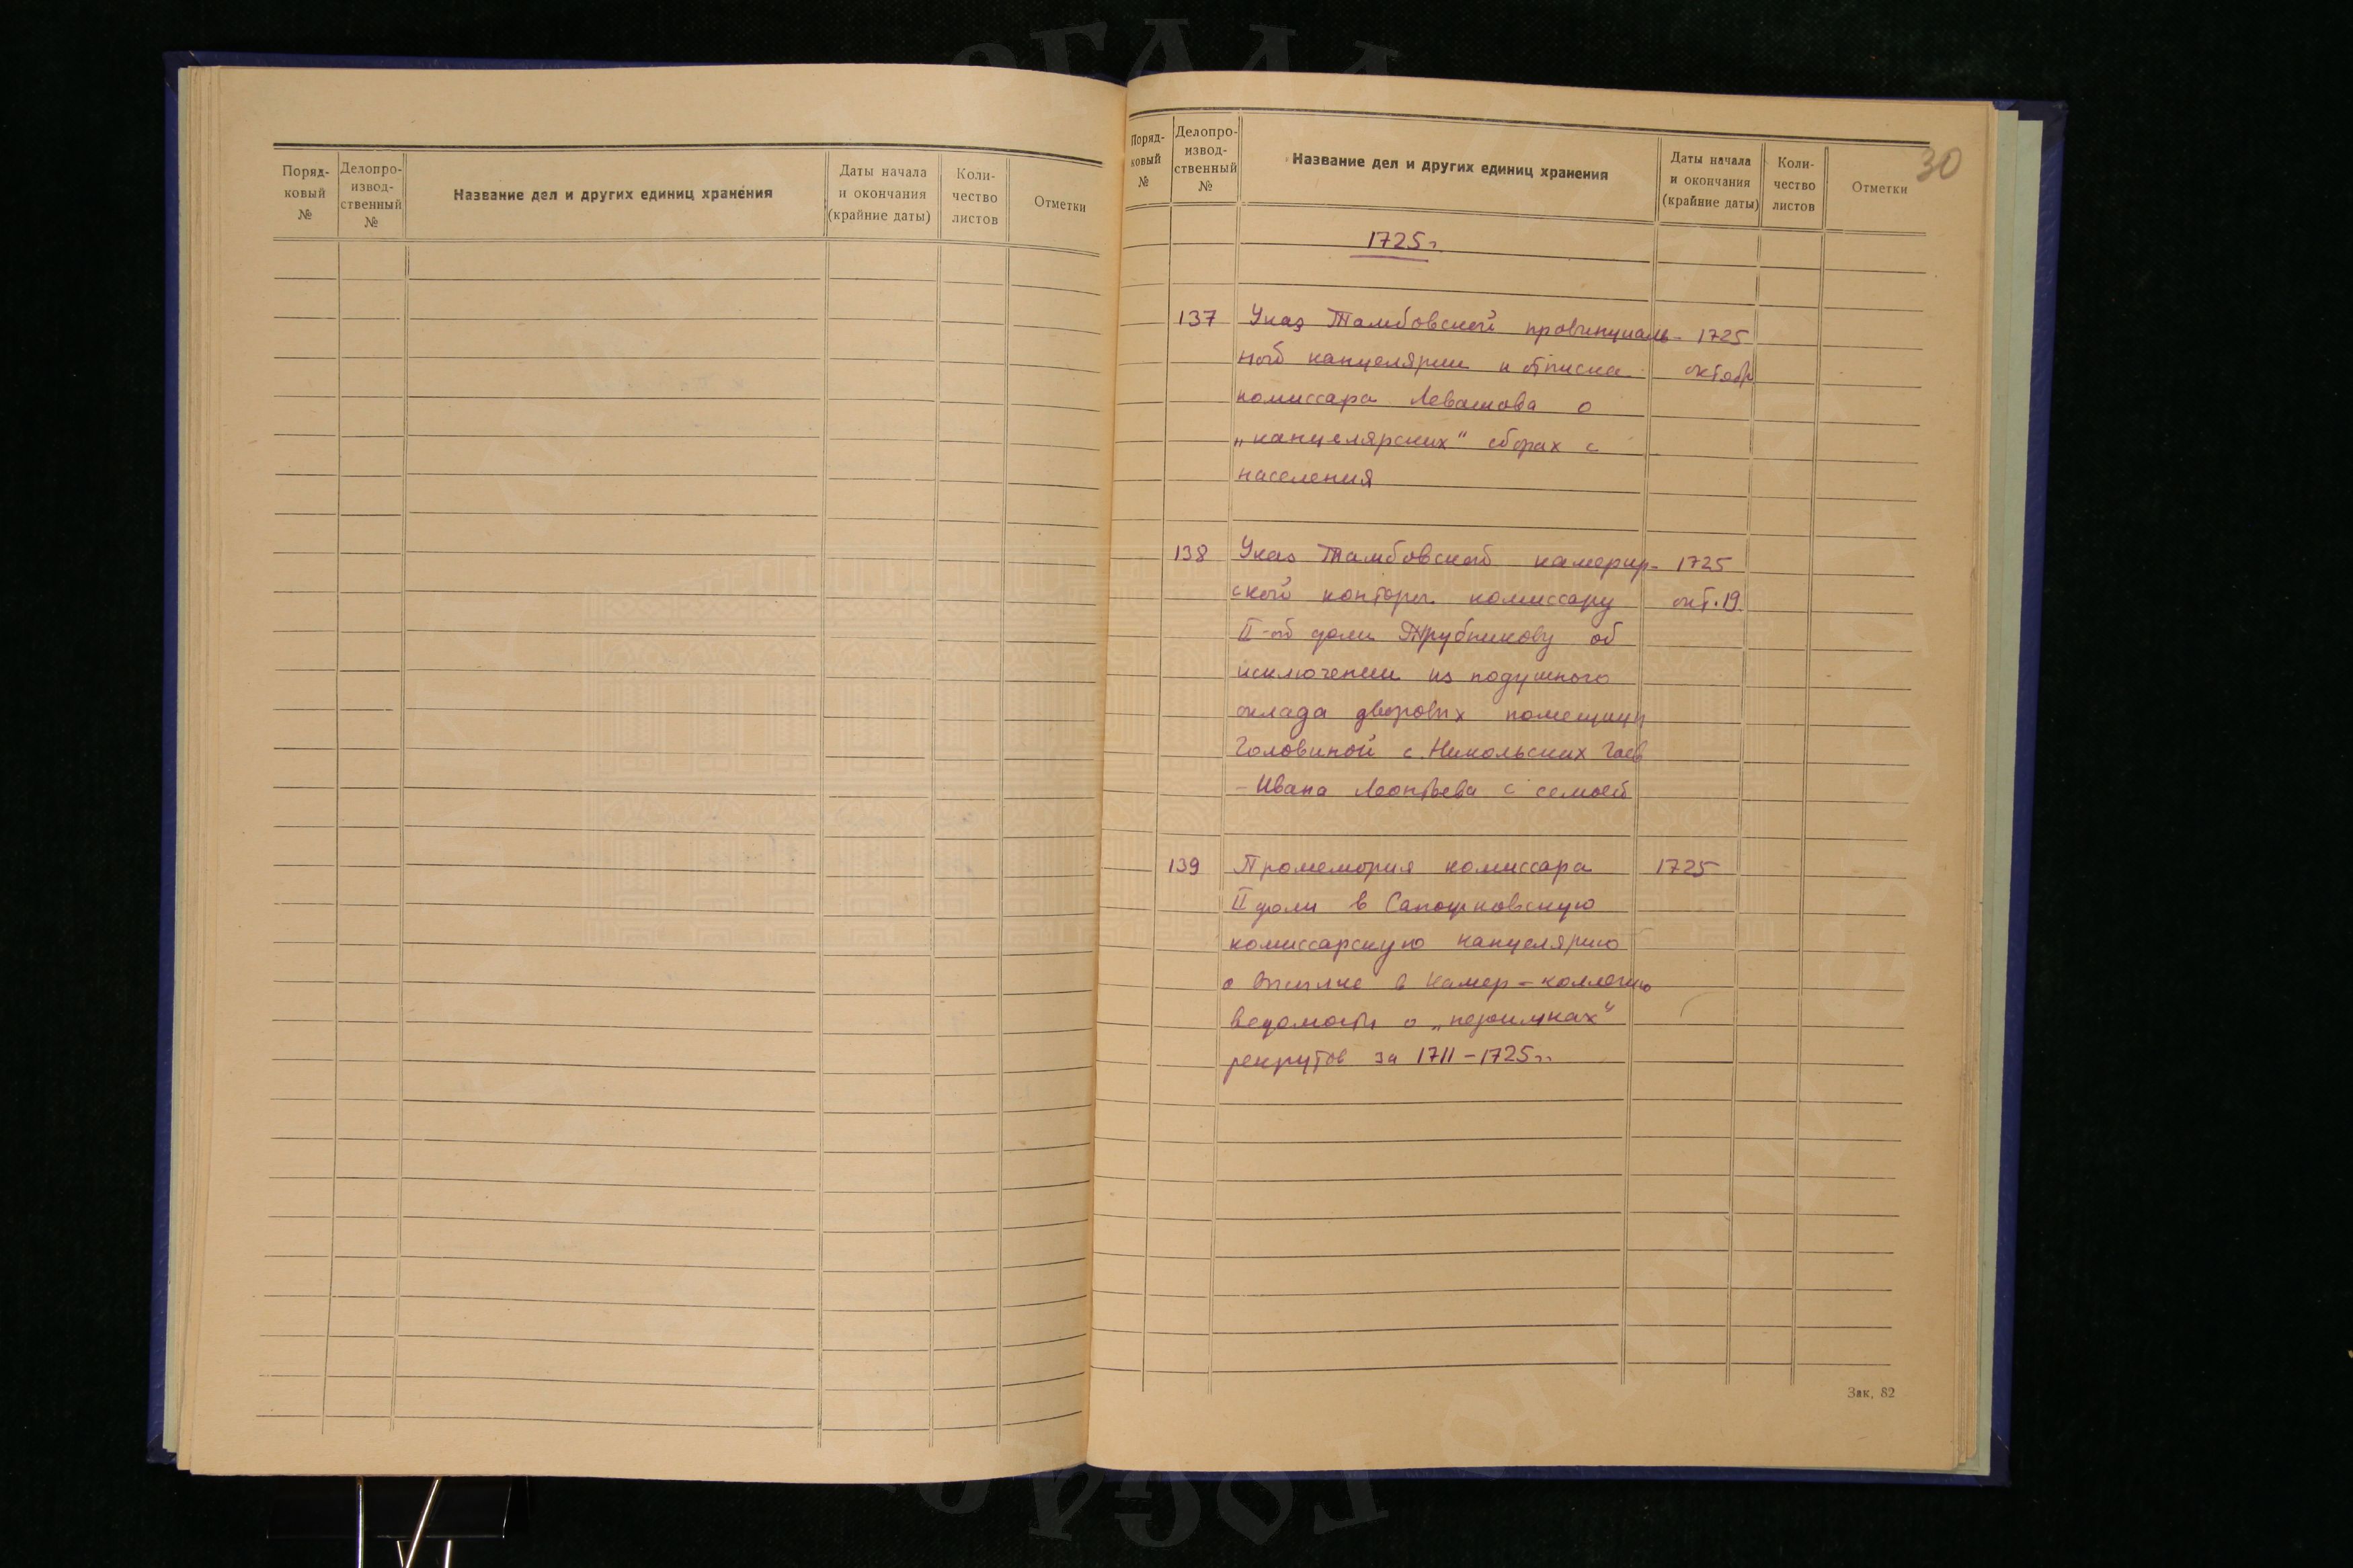 Поряд-
ковый
№
Делопро-
извод-
ственный
№
Название дел и других единиц хранения
Даты начала
и окончания
(крайние даты)
Коли-
чество
листов
Отметки
30
Поряд-
ковый
№
Делопро-
извод-
ственный
№
Название дел и других единиц хранения
Даты начала
и окончания
(крайние даты)
Коли-
чество
листов
Отметки
1725 г.
137 Указ Тамбовской провинциаль- 1725
ной канцелярии и отписка октябр
комиссара Левашова о
„канцелярских“ сборах с
населения
138 Указ Тамбовской камерир- 1725
ской конторы комиссару окт. 19
II-ой доли Трубникову об
исключении из подушного
оклада дворовых помещицы
Головиной с. Никольских Гаев
- Ивана Леонтьева с семьей
139 Промемория комиссара 1725
II доли в Сапожковскую
комиссарскую канцелярию
о высылке в Камер-коллегию
ведомости о „недоимках“
рекрутов за 1711-1725 гг.
Зак. 82